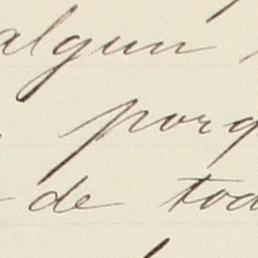 algun
porq
de tod